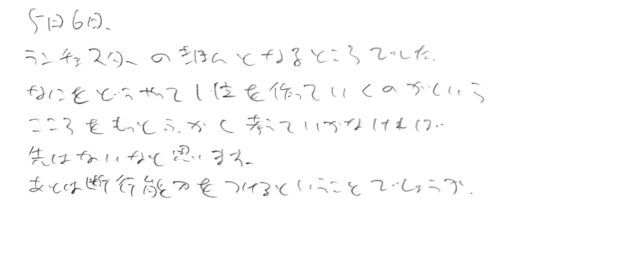 5日6日、
ランチェスターの基ほんとなるところでした。
なにをどうやって1位を作っていくのかという
こころをもっとふかく考えていかなければ
先はないなと思います。
あとは断行能力をつけるということでしょうか。